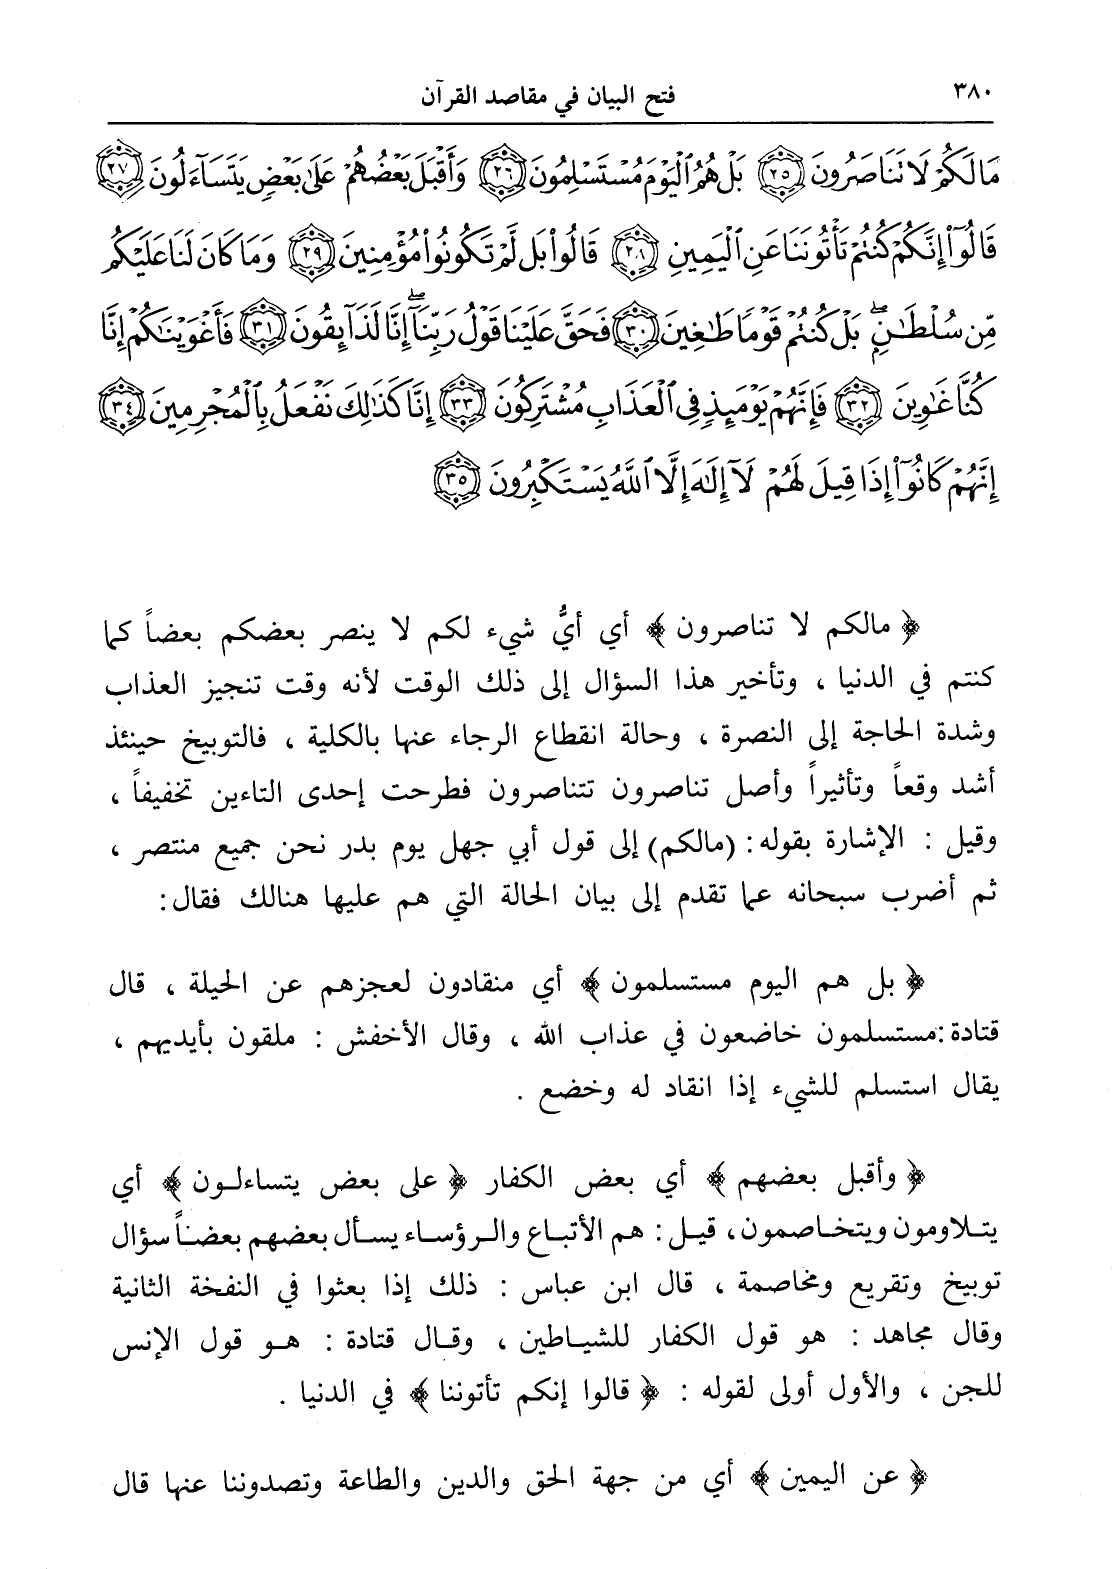 ٣٨٠ فتح البيان في مقاصد القرآن
مَا لَكُمْ لَا تَنَاصَرُونَ ٢٥ بَلْ هُمُ ٱلْيَوْمَ مُسْتَسْلِمُونَ ٢٦ وَأَقْبَلَ بَعْضُهُمْ عَلَىٰ بَعْضٍ يَتَسَآءَلُونَ ٢٧
قَالُوٓا۟ إِنَّكُمْ كُنتُمْ تَأْتُونَنَا عَنِ ٱلْيَمِينِ ٢٨ قَالُوا۟ بَل لَّمْ تَكُونُوا۟ مُؤْمِنِينَ ٢٩ وَمَا كَانَ لَنَا عَلَيْكُم
مِّن سُلْطَٰنٍۭ ۖ بَلْ كُنتُمْ قَوْمًا طَٰغِينَ ٣٠ فَحَقَّ عَلَيْنَا قَوْلُ رَبِّنَآ ۖ إِنَّا لَذَآئِقُونَ ٣١ فَأَغْوَيْنَٰكُمْ إِنَّا
كُنَّا غَٰوِينَ ٣٢ فَإِنَّهُمْ يَوْمَئِذٍ فِى ٱلْعَذَابِ مُشْتَرِكُونَ ٣٣ إِنَّا كَذَٰلِكَ نَفْعَلُ بِٱلْمُجْرِمِينَ ٣٤
إِنَّهُمْ كَانُوٓا۟ إِذَا قِيلَ لَهُمْ لَآ إِلَٰهَ إِلَّا ٱللَّهُ يَسْتَكْبِرُونَ ٣٥
﴿ مالكم لا تناصرون ﴾ أي أيُّ شيء لكم لا ينصر بعضكم بعضاً كما
كنتم في الدنيا ، وتأخير هذا السؤال إلى ذلك الوقت لأنه وقت تنجيز العذاب
وشدة الحاجة إلى النصرة ، وحالة انقطاع الرجاء عنها بالكلية ، فالتوبيخ حينئذ
أشد وقعاً وتأثيراً وأصل تناصرون تتناصرون فطرحت إحدى التاءين تخفيفاً ،
وقيل : الإشارة بقوله: (مالكم) إلى قول أبي جهل يوم بدر نحن جميع منتصر ،
ثم أضرب سبحانه عما تقدم إلى بيان الحالة التي هم عليها هنالك فقال:
﴿ بل هم اليوم مستسلمون ﴾ أي منقادون لعجزهم عن الحيلة ، قال
قتادة: مستسلمون خاضعون في عذاب الله ، وقال الأخفش : ملقون بأيديهم ،
يقال استسلم للشيء إذا انقاد له وخضع .
﴿ وأقبل بعضهم ﴾ أي بعض الكفار ﴿ على بعض يتساءلون ﴾ أي
يتلاومون ويتخاصمون، قيل : هم الأتباع والرؤساء يسأل بعضهم بعضاً سؤال
توبيخ وتقريع ومخاصمة ، قال ابن عباس : ذلك إذا بعثوا في النفخة الثانية
وقال مجاهد : هو قول الكفار للشياطين ، وقال قتادة : هو قول الإنس
للجن ، والأول أولى لقوله : ﴿ قالوا إنكم تأتوننا ﴾ في الدنيا .
﴿ عن اليمين ﴾ أي من جهة الحق والدين والطاعة وتصدوننا عنها قال